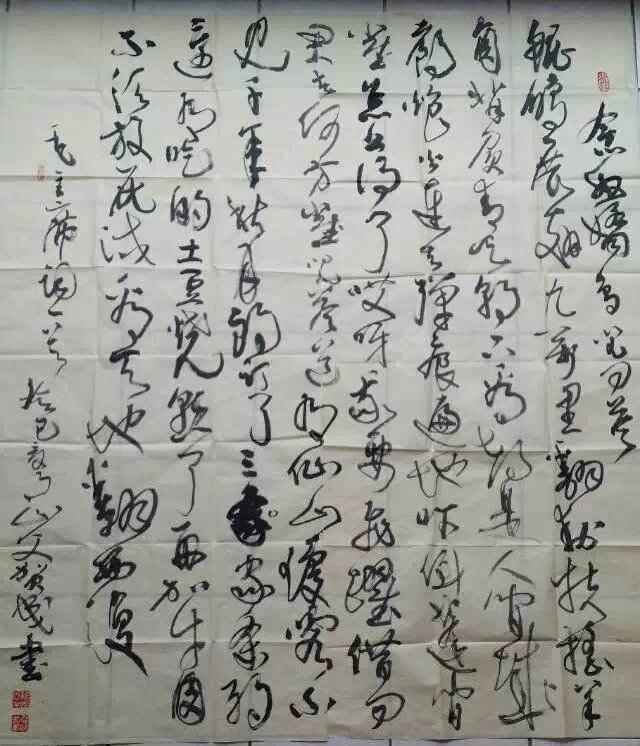 念奴娇鸟儿问答
鲲鹏展翅九万里翻动扶摇羊
角背负青天朝下看都是人间城
郭炮火连天弹痕遍地吓倒蓬间
雀怎么得了哎呀我要飞跃借问
君去何方雀儿答道有仙山琼阁不
见年秋月朗订了三家条约
还有吃的土豆烧熟了再加牛肉
不须放屁试看天地翻覆
毛主席词一首 癸巳 山 贺 书